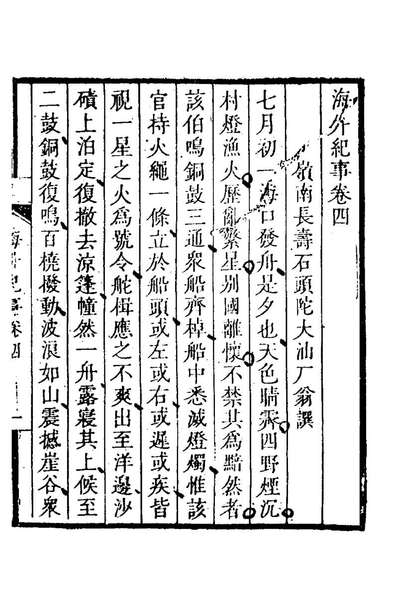 海外紀事卷四
嶺南長壽石頭陀大汕厂翁譔
七月初一海口發舟是夕也天色晴霽四野煙沉
村燈漁火歷亂繁星別國離懷不禁其為黯然者
該伯鳴銅鼓三通衆船齊棹船中悉滅燈燭惟該
官持火繩一條立於船頭或左或右或遲或疾皆
視一星之火爲號令舵楫應之不爽出至洋邊沙
磧上泊定復撤去涼篷幢然一舟露寢其上候至
二鼓銅鼓復鳴百橈撥動波浪如山震撼崖谷衆
海外紀事卷四